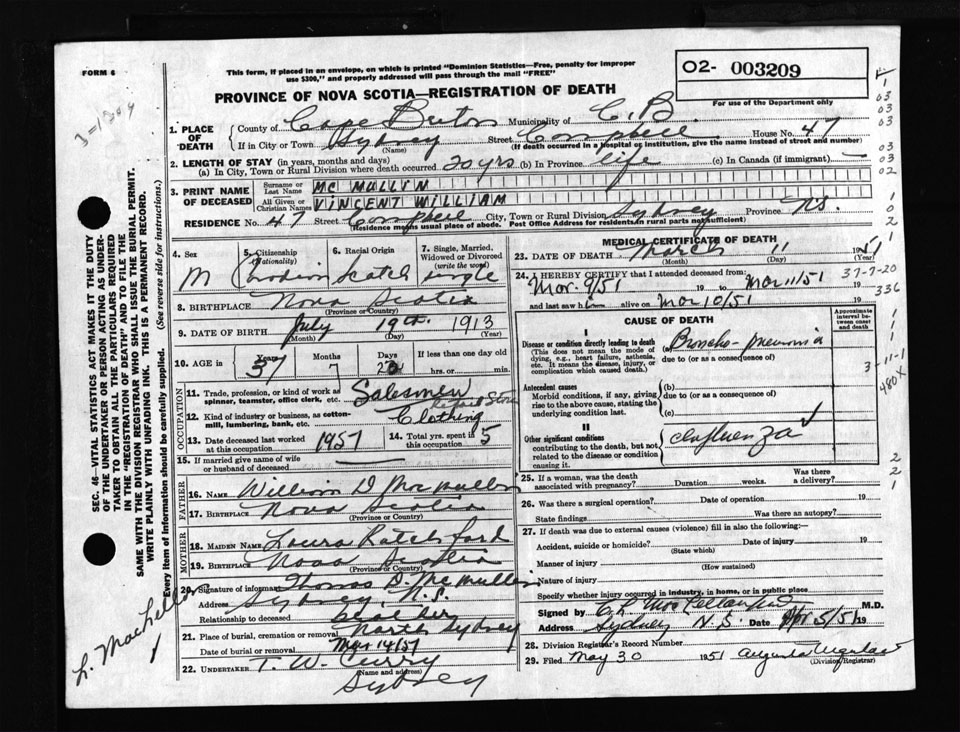 FORM 6
This form, if placed in an envelope, on which is printed "Dominion Statistics—Free, penalty for improper
use $300," and properly addressed will pass through the mail "FREE"
O2- 003209
For use of the Department only
PROVINCE OF NOVA SCOTIA—REGISTRATION OF DEATH
1. PLACE OF DEATH
County of Cape Breton Municipality of C. B
If in City or Town Sydney Street House No. 47
(Name) (If death occurred in a hospital or institution, give name instead of street and number)
2. LENGTH OF STAY (in years, months and days)
(a) In City, Town or Rural Division where death occurred 20 yrs (b) In Province life (c) In Canada (if immigrant) —
3. PRINT NAME OF DECEASED
Surname or Last Name MC MULLIN
All Given or Christian Names VINCENT WILLIAM
RESIDENCE No. 47 Street City, Town or Rural Division Sydney Province N.S.
Residence means usual place of abode. Post Office Address for residents in rural parts not sufficient)
4. Sex M
5. Citizenship (Nationality)
6. Racial Origin Scotch
7. Single, Married, Widowed or Divorced (write the word) single
8. BIRTHPLACE Nova Scotia
(Province or Country)
9. DATE OF BIRTH July 19th 1913
(Month) (Day) (Year)
10. AGE in Years 37 Months 7 Days If less than one day old hrs. or min.
OCCUPATION
11. Trade, profession, or kind of work as spinner, teamster, office clerk, etc. Salesmen
12. Kind of industry or business, as cotton-mill, lumbering, bank, etc. Clothing
13. Date deceased last worked at this occupation 1951
14. Total yrs. spent in this occupation 5
15. If married give name of wife or husband of deceased —
FATHER
16. NAME William D McMullin
17. BIRTHPLACE Nova Scotia
(Province or Country)
MOTHER
18. MAIDEN NAME Laura Ratchford
19. BIRTHPLACE Nova Scotia
(Province or Country)
20. Signature of informant Thomas D. McMullin
Address Sydney, N.S.
Relationship to deceased brother
21. Place of burial, cremation or removal North Sydney
Date of burial or removal Mar 14/51
22. UNDERTAKER T. W. Curry
(Name and address)
Sydney
MEDICAL CERTIFICATE OF DEATH
23. DATE OF DEATH March 11 1951
(Month) (Day)
24. I HEREBY CERTIFY that I attended deceased from:
Mar. 9/51 19 to Mar 11/51 19
and last saw him alive on Mar 10/51 19
37-7-20
336
CAUSE OF DEATH
Approximate interval between onset and death
I
Disease or condition directly leading to death
(This does not mean the mode of dying, e.g., heart failure, asthenia, etc. It means the disease, injury, or complication which caused death.)
(a) Broncho-pneumonia
due to (or as a consequence of)
Antecedent causes
Morbid conditions, if any, giving rise to the above cause, stating the underlying condition last.
(b)
due to (or as a consequence of)
(c)
3-11-1
480X
II
Other significant conditions
contributing to the death, but not related to the disease or condition causing it.
Influenza
25. If a woman, was the death associated with pregnancy? Duration weeks. Was there a delivery?
26. Was there a surgical operation? Date of operation 19
State findings Was there an autopsy?
27. If death was due to external causes (violence) fill in also the following:—
Accident, suicide or homicide? Date of injury 19
(State which)
Manner of injury
(How sustained)
Nature of injury
Specify whether injury occurred in industry, in home, or in public place
Signed by M.D.
Address Sydney N.S. Date Apr 5/51 19
28. Division Registrar's Record Number
29. Filed May 30 1951
(Division Registrar)
SEC. 46—VITAL STATISTICS ACT MAKES IT THE DUTY
OF THE UNDERTAKER OR PERSON ACTING AS UNDER-
TAKER TO OBTAIN ALL THE PARTICULARS REQUIRED
IN THE "REGISTRATION OF DEATH" AND TO FILE THE
SAME WITH THE DIVISION REGISTRAR WHO SHALL ISSUE THE BURIAL PERMIT.
WRITE PLAINLY WITH UNFADING INK. THIS IS A PERMANENT RECORD.
Every item of Information should be carefully supplied. (See reverse side for instructions.)